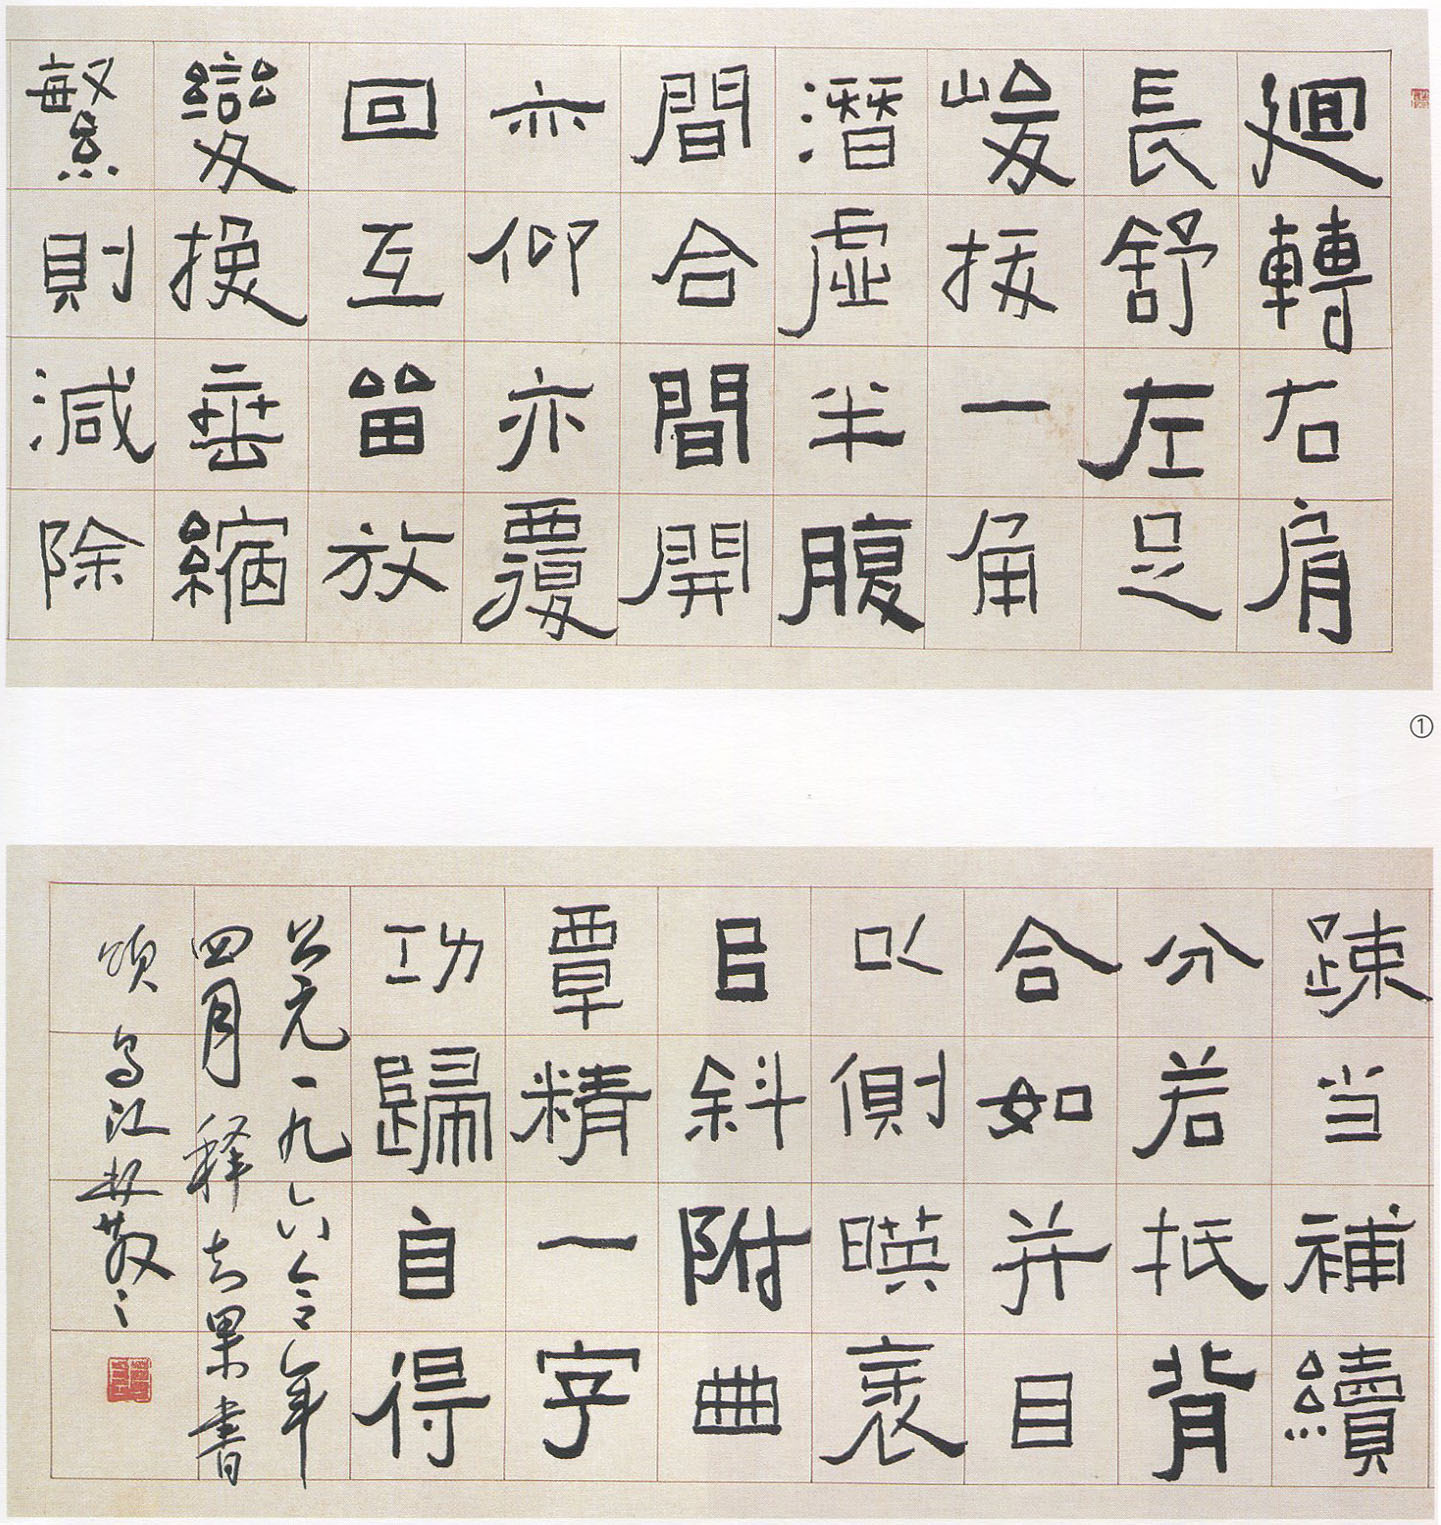 迴轉右肩
長舒左足
峻拔一角
潛虛半腹
間合間開
亦仰亦覆
回互畱放
變換垂縮
繁則減除
①
疎当補續
分若抵背
合如并目
以側暎衺
㠯斜附曲
覃精一字
功歸自得
公元一九六令年
四月释果書
頌 烏江散之